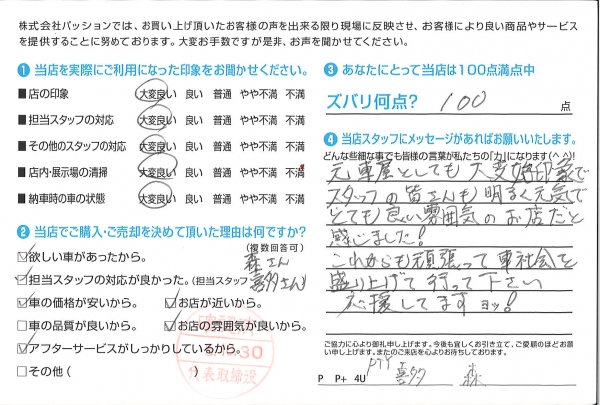 株式会社パッションでは、お買い上げ頂いたお客様の声を出来る限り現場に反映させ、お客様により良い商品やサービス
を提供することに努めております。大変お手数ですが是非、お声を聞かせてください。
❶ 当店を実際にご利用になった印象をお聞かせください。
■店の印象 大変良い 良い 普通 やや不満 不満
■担当スタッフの対応 大変良い 良い 普通 やや不満 不満
■その他のスタッフの対応 大変良い 良い 普通 やや不満 不満
■店内・展示場の清掃 大変良い 良い 普通 やや不満 不満
■納車時の車の状態 大変良い 良い 普通 やや不満 不満
❷ 当店でご購入・ご売却を決めて頂いた理由は何ですか?
(複数回答可)
☑欲しい車があったから。
☑担当スタッフの対応が良かった。(担当スタッフ 森さん 喜多さん)
☑車の価格が安いから。 ☑お店が近いから。
□車の品質が良いから。 ☑お店の雰囲気が良いから。
☑アフターサービスがしっかりしているから。
□その他( )
30
代表取締役
❸ あなたにとって当店は100点満点中
ズバリ何点? 100 点
❹ 当店スタッフにメッセージがあればお願いいたします。
どんな些細な事でも皆様の言葉が私たちの「力」になります(^^)!
元車屋としても大変好印象で
スタッフの皆さんも明るく元気で
とても良い雰囲気のお店だと
感じました!
これからも頑張って車社会を
盛り上げて行って下さい
応援してますヨッ!
ご協力に心より御礼申し上げます。今後も宜しくお引き立て、ご愛顧のほどお願
い申し上げます。またのご来店を心よりお待ちしております。
P P+ 4U
喜多 森